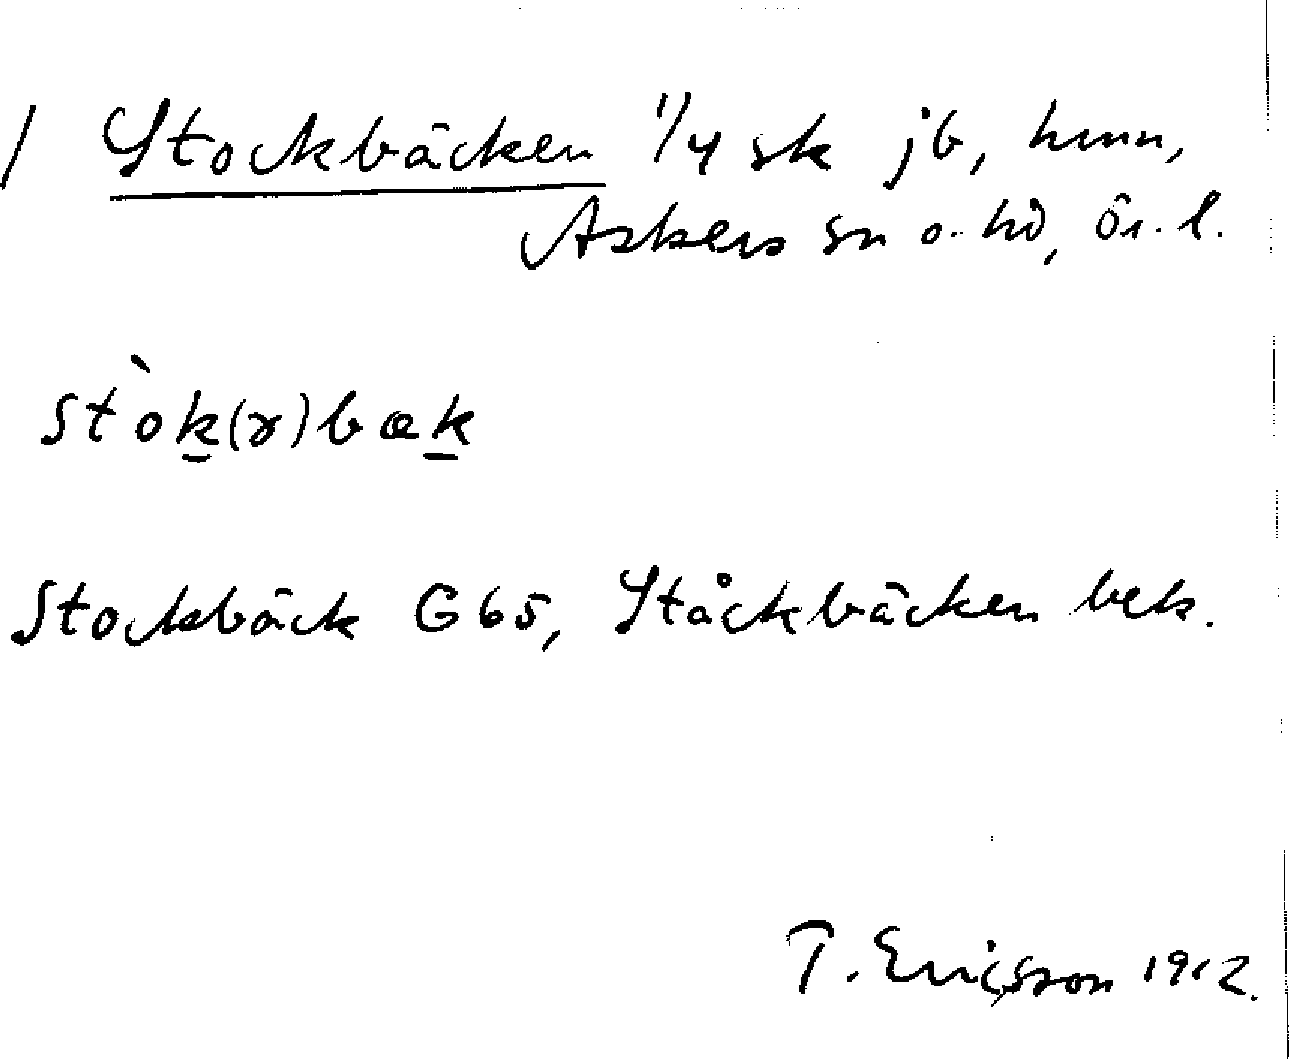 / Stockbäcken 1/4 sk jb, hmn,
Askers sn o. hd, Ör. l.
stòk(ɤ)bæk
Stockbäck G65, Ståckbäcken bek.
T. Ericsson 1912.